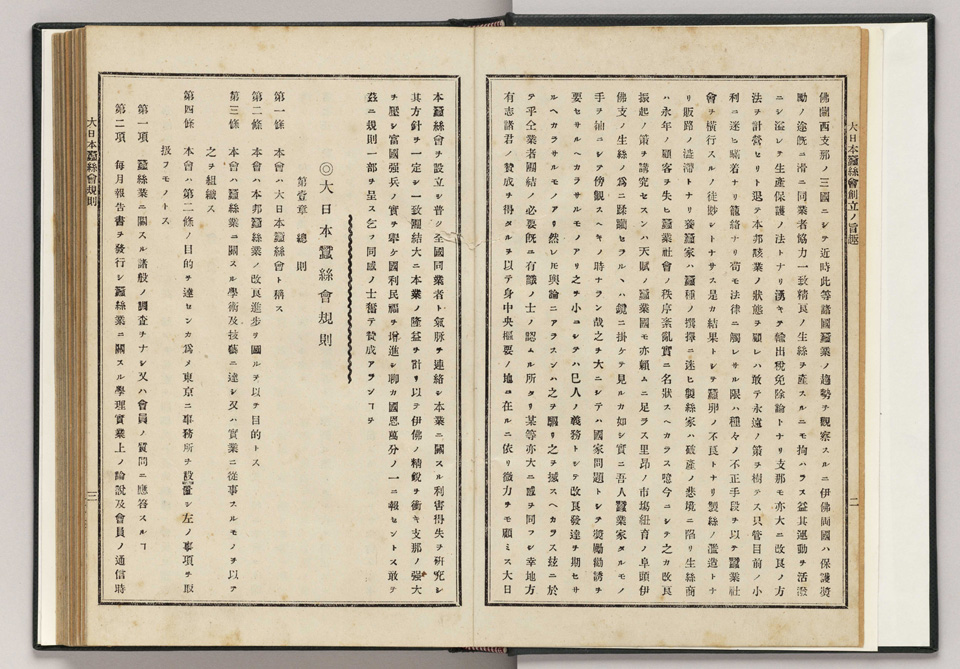 大日本蠶絲會創立ノ旨趣
二
佛蘭西支那ノ三國ニシテ近時此等諸國蠶業ノ趨勢ヲ觀察スルニ伊佛兩國ハ保護奬
勵ノ途既ニ滑ニ同業者協力一致精良ノ生絲ヲ產スルニモ拘ハラス益其運動ヲ活潑
ニシ溢レテ生產保護ノ法トナリ湧キテ輸出稅免除論トナリ支那モ亦大ニ改良ノ方
法ヲ計營セリト退テ本邦該業ノ狀態ヲ顧レハ敢テ永遠ノ策ヲ樹テス只管目前ノ小
利ニ迷ヒ瞞着ナリ籠絡ナリ苟モ法律ニ觸レサル限ハ種々ノ不正手段ヲ以テ蠶業社
會ヲ橫行スルノ徒尠シトナサス是カ結果トシテ蠶卵ノ不良トナリ製絲ノ濫造トナ
リ販路ノ澁滯トナリ養蠶家ハ蠶種ノ撰擇ニ迷ヒ製絲家ハ破產ノ悲境ニ陷リ生絲商
ハ永年ノ顧客ヲ失ヒ蠶業社會ノ秩序紊亂實ニ名狀スヘカラス噫今ニシテ之カ改良
振起ノ策ヲ講究セスンハ天賦ノ蠶業國モ亦賴ムニ足ラス里昂ノ市塲紐育ノ阜頭伊
佛支ノ生絲ノ爲ニ蹂躪セラルヽハ鏡ニ掛ケテ見ルカ如シ實ニ吾人蠶業家タルモノ
手ヲ袖ニシテ傍觀スヘキノ時ナラン哉之ヲ大ニシテハ國家問題トシテ奬勵勸誘ヲ
要セサルヘカラサルモノアリ之ヲ小ニシテハ巳人ノ義務トシテ改良發達ヲ期セサ
ルヘカラサルモノアリ然レ𪜈輿論ニアラスンハ之ヲ驅リ之ヲ撼スヘカラス玆ニ於
テ乎仝業者團結ノ必要既ニ有識ノ士ノ認ムル所タリ某等亦大ニ感ヲ同フシ幸地方
有志諸君ノ贊成ヲ得タルヲ以テ身中央樞要ノ地ニ在ルニ依リ微力ヲモ顧ミス大日
本蠶絲會ヲ設立シ普ク全國同業者ト氣脉ヲ連絡シ本業ニ關スル利害得失ヲ硏究シ
其方針ヲ一定シ一致團結大ニ本業ノ隆益ヲ計リ以テ伊佛ノ精銳ヲ衝キ支那ノ强大
ヲ壓シ富國强兵ノ實ヲ擧ケ國利民福ヲ增進シ聊カ國恩萬分ノ一ニ報セントス敢テ
玆ニ規則一部ヲ呈ス乞フ同感ノ士奮テ贊成アランヿヲ
◎大日本蠶絲會規則
第壹章 總則
第一條 本會ハ大日本蠶絲會ト稱ス
第二條 本會ハ本邦蠶絲業ノ改良進步ヲ圖ルヲ以テ目的トス
第三條 本會ハ蠶絲業ニ關スル學術及技藝ニ達シ又ハ實業ニ從事スルモノヲ以テ
之ヲ組織ス
第四條 本會ハ第二條ノ目的ヲ達センカ爲メ東京ニ事務所ヲ設置シ左ノ事項ヲ取
扱フモノトス
第一項 蠶絲業ニ關スル諸般ノ調査ヲナシ又ハ會員ノ質問ニ應答スルヿ
第二項 每月報告書ヲ發行シ蠶絲業ニ關スル學理實業上ノ論說及會員ノ通信時
大日本蠶絲會規則
三